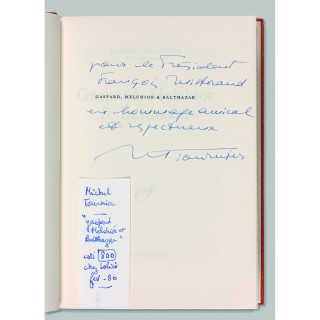 pour le Président
François Mitterand
GASPARD, MELCHIOR & BALTHAZAR
en hommage amical
et respectueux
M. Tournier
Michel
Tournier
"gaspard
Melchior et
Balthazar"
coté 800
chez
fev - 86